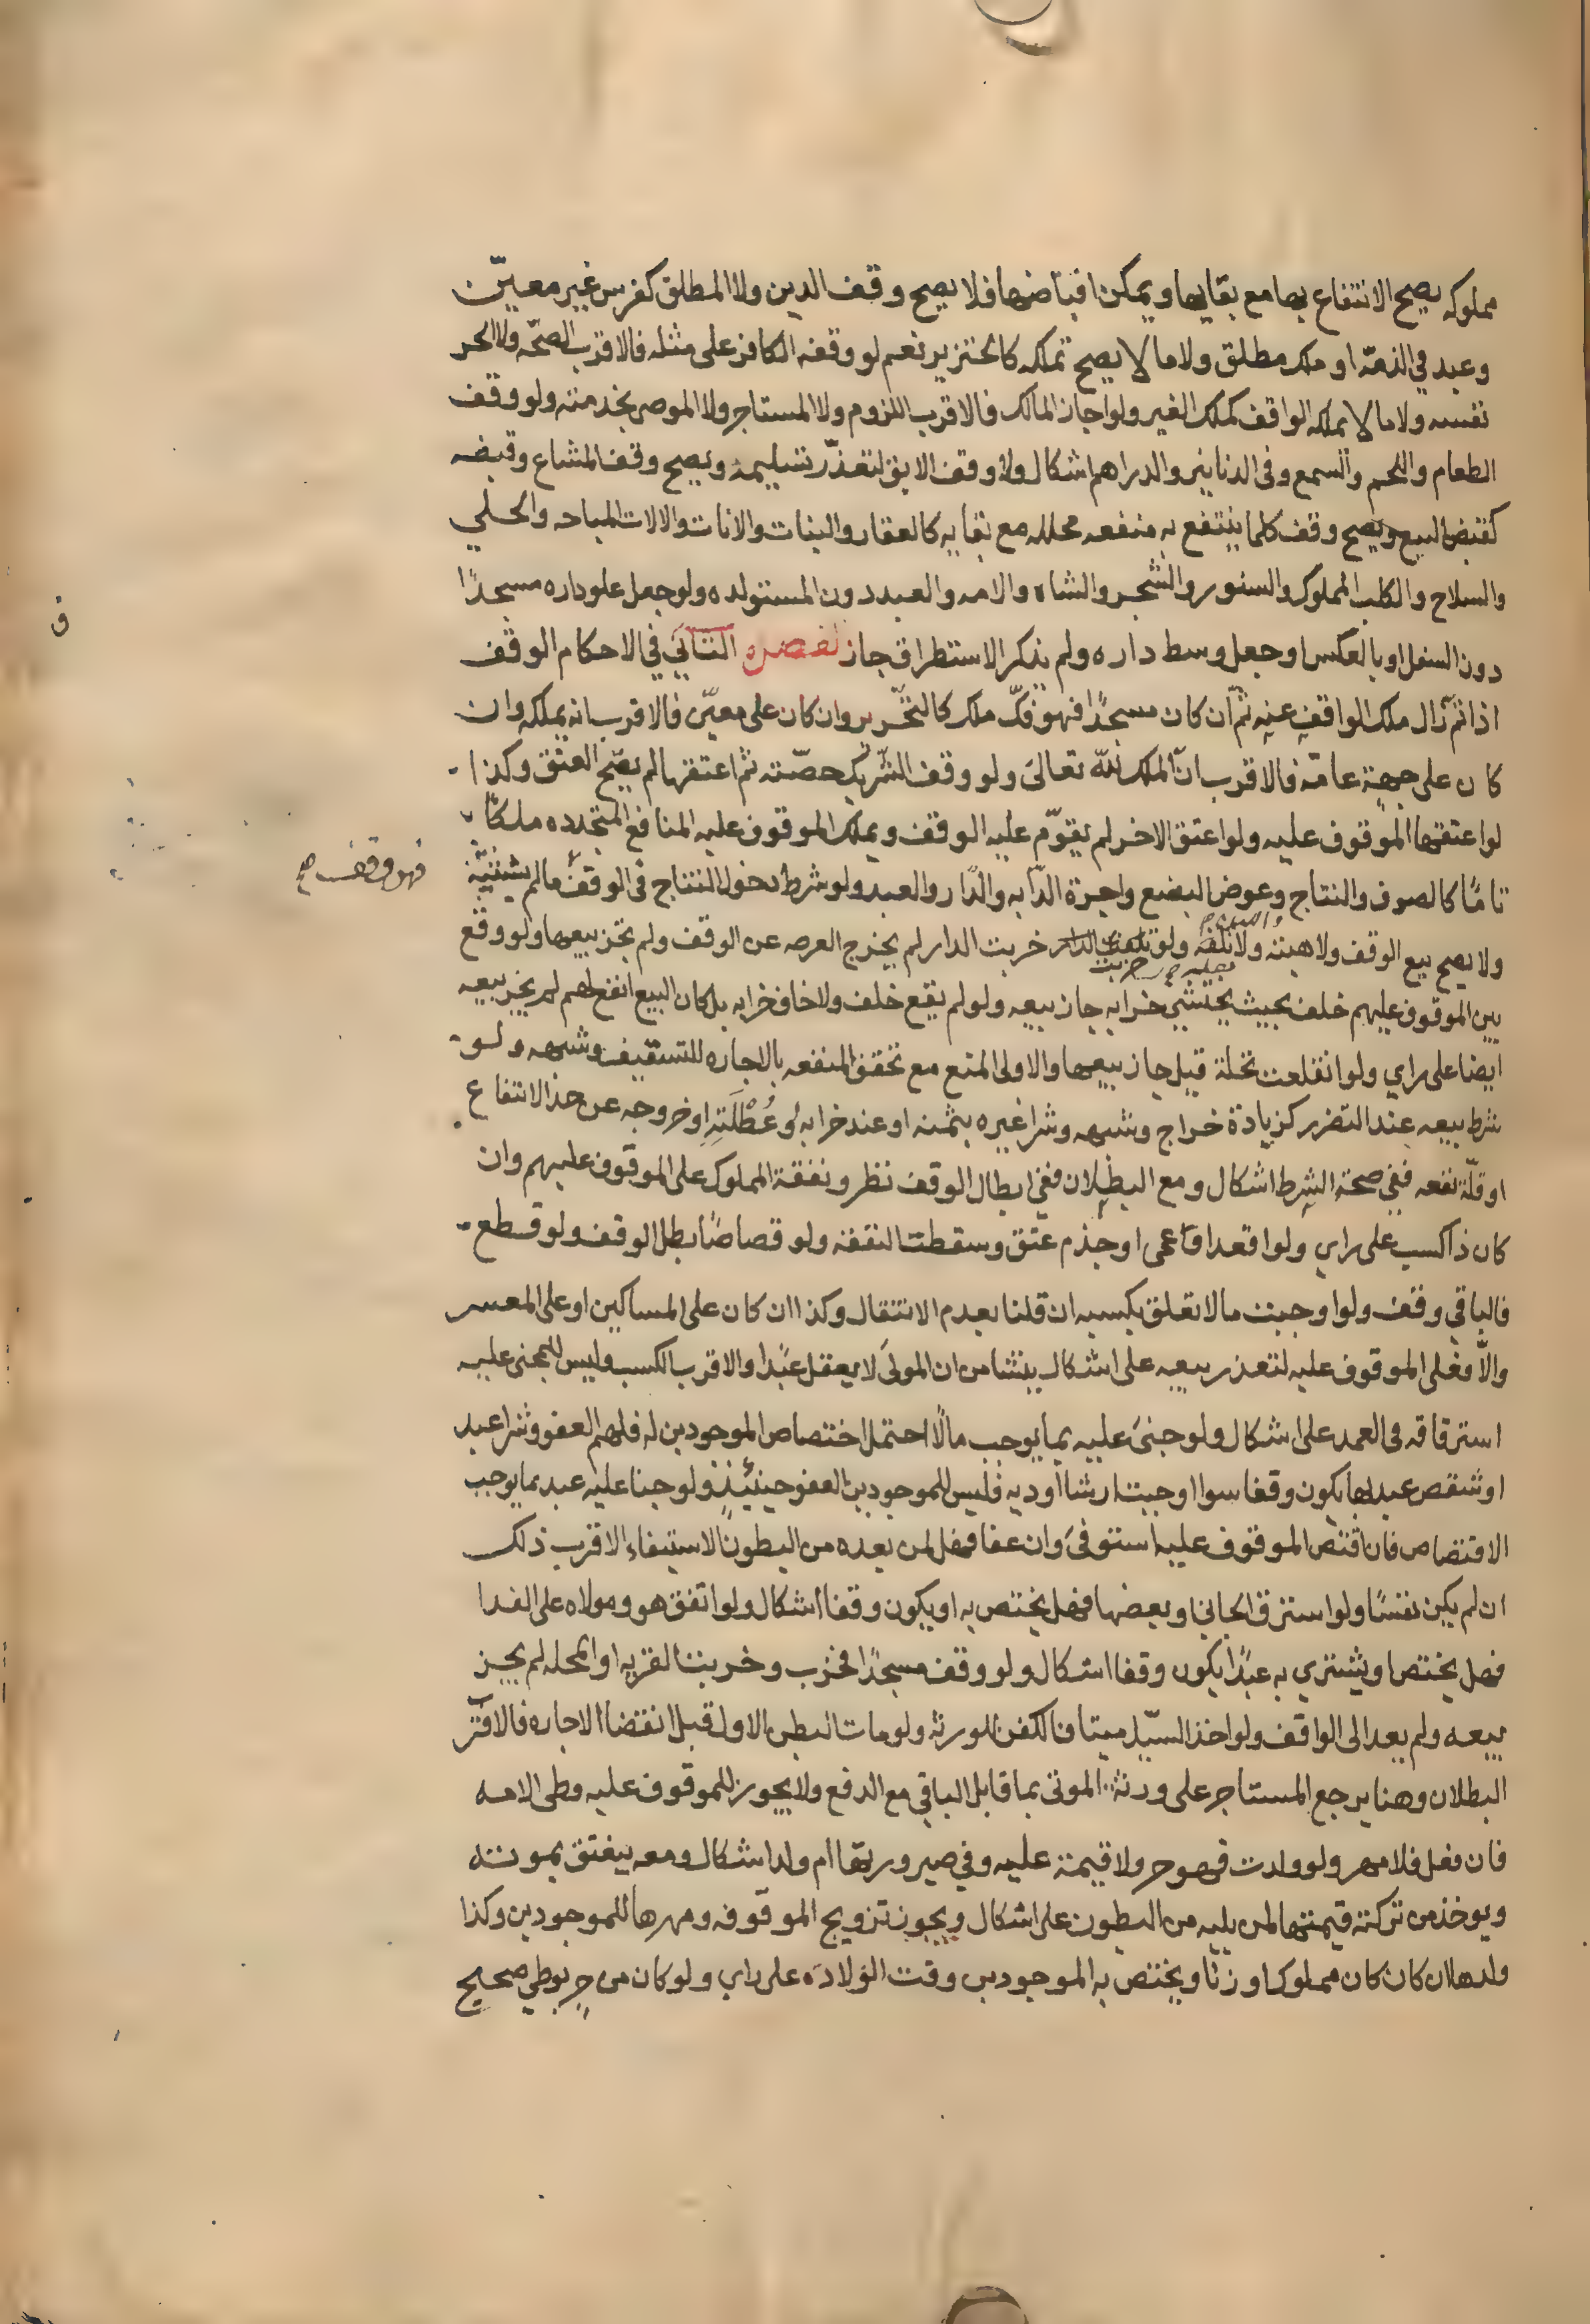 مملوكه يصح الانتفاع بها مع بقايها ويمكن اقباضها فلا يصح وقف الدين ولا المطلق كفرس غير معيّن
وعبد في الذمّة او ملك مطلق ولا ما لا يصح تملكه كالخنزير نعم لو وقفه الكافر على مثله فالاقرب الصحّه ولا الحر
نفسه ولا ما لا يملكه الواقف كملك الغير ولو اجاز المالك فالاقرب اللزوم ولا المستاجر ولا الموصى بخدمته ولو وقف
الطعام واللحم والسمع وفى الدنانير والدراهم اشكال ولا وقف الابق لتعذّر تسليمه ويصح وقف المشاع وقبضه
كقبض البيع ويصح وقف كلما ينتفع به منفعه محلله مع بقايه كالعقار والبنات والاثاث والالات المباحه والحلي
والسلاح والكلب المملوك والسنور والشجر والشاه والامه والعبد دون المستولده ولو جعل علو داره مسجدًا
دون السفل او بالعكس او جعل وسط داره ولم يذكر الاستطراق جاز الفصل الثاني في الاحكام الوقف
اذا تمّ زال ملك الواقف عنه ثمّ ان كان مسجدًا فهو فكّ ملك كالتحّرير وان كان على معيّن فالاقرب انه يملكه وان
كان على جهة عامّه فالاقرب انّ الملك للّه تعالى ولو وقف الشّريك حصّته ثم اعتقها لم يصّح العتق وكذا
لو اعتقها الموقوف عليه ولو اعتق الاخر لم يقوّم عليه الوقف ويملك الموقوف عليه المنافع المتجدده ملكًا
تامًا كالصوف والنتاج وعوض البضع واجرة الدّابه والدّار والعبد ولو شرط دخول النتاج فى الوقف ما لم يستثنيه
فهو وقف صح
ولا يصح بيع الوقف ولا هبته ولا نلفه ولو خربت الدار لم يخرج العرصه عن الوقف ولم يجز بيعها ولو وقع
بين الموقوف عليهم خلف بحيث يخشي خرابه جاز بيعه ولو لم يقع خلف ولا خاف خرابه بل كان البيع انفع لهم لم يجز بيعه
ايضا على راي ولو انقلعت نخلة قيل جاز بيعها والاولى المنع مع تحقق المنفعه بالاجاره للتسقيف وشبهه ولو
شرط بيعه عند التضرر كزيادة خراج وشبهه وشرا غيره بثمنه او عند خرابه او عُطْلَتِهِ او خروجه عن حد الانتفاع
او قلّة نفعه ففي صحة الشرط اشكال ومع البطلان ففي ابطال الوقف نظر ونفقة المملوك على الموقوف عليهم وان
كان ذا كسب على راي ولو اقعد او عمى او جذم عتق وسقطت النفقه ولو قصاصًا بطل الوقف ولو قطع
فالباقي وقف ولو اوجبت مالا تعلق بكسبه ان قلنا بعدم الانتقال وكذا ان كان على المساكين او على المعسر
والّا فعلى الموقوف عليه لتعذر بيعه على اشكال ينشا من ان المولى لا يعقل عبدًا والاقرب الكسب وليس للمجنى عليه
استرقاقه فى العمد على اشكال ولو جنى عليه بما يوجب مالًا احتمل اختصاص الموجودين له فلهم العفو وشرا عبد
او شقص عبد بها يكون وقفا سوا اوجبت ارشا او ديه فليس للموجودين العفو حينئذٍ ولو جنا عليه عبد بما يوجب
الاقتصاص فان اقتص الموقوف عليه استوفى وان عفا فهل لمن بعده من البطون الاستيفاء الاقرب ذلك
ان لم يكن نفسًا ولو استرق الجاني او بعضها فهل يختص به او يكون وقفا اشكال ولو اتفق هو ومولاه على الفدا
فهل يختص او يشتري به عبدًا يكون وقفا اشكال ولو وقف مسجدًا فخرب وخربت القريه او المحله لم يجز
بيعه ولم يعد الى الواقف ولو اخذ السيل ميتا فالكفن للورثه ولو مات البطن الاول قبل انقضا الاجاره فالاقرب
البطلان وهنا يرجع المستاجر على ورثة الموتى بما قابل الباقي مع الدفع ولا يجوز للموقوف عليه وطى الامه
فان فعل فلا مهر ولو ولدت فهو حر ولا قيمة عليه وفي صيرورتها ام ولد اشكال ومعه ينعتق بموته
ويوخذ من تركته قيمتها لمن يليه من البطون على اشكال ويجوز تزويج الموقوفه ومهرها للموجودين وكذا
ولدها ان كان كان مملوكا او زنا ويختص به الموجودين وقت الولادَه على راي ولو كان من حر بوطي صحيح